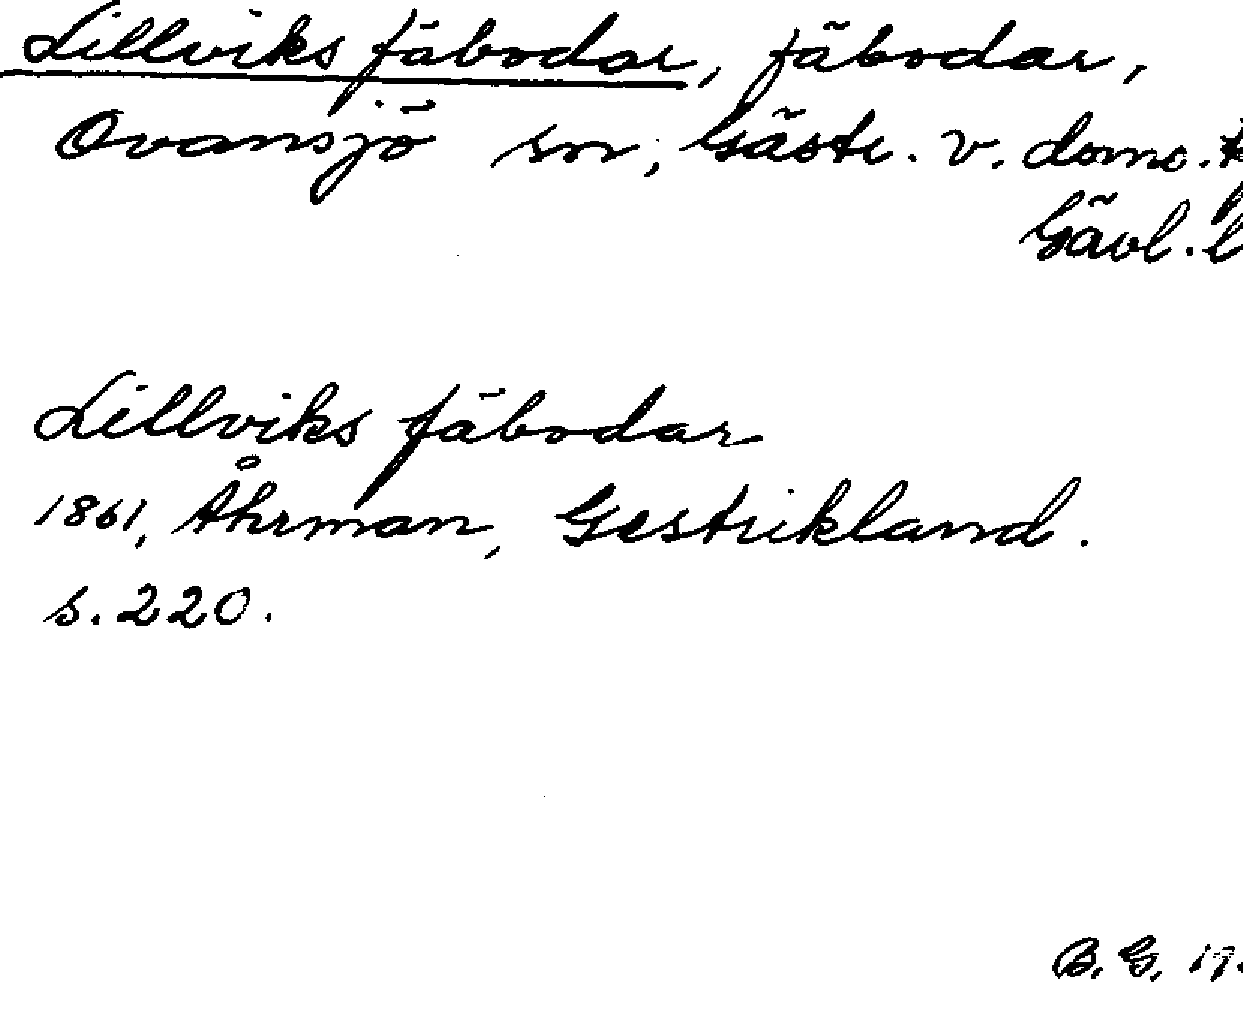 Lillviks fäbodar, fäbodar,
Ovansjö sn, Gästr. v. doms.
Gävl. l
Lillviks fäbodar
1861, Åhrman, Gestrikland.
s. 220.
B. G. 19